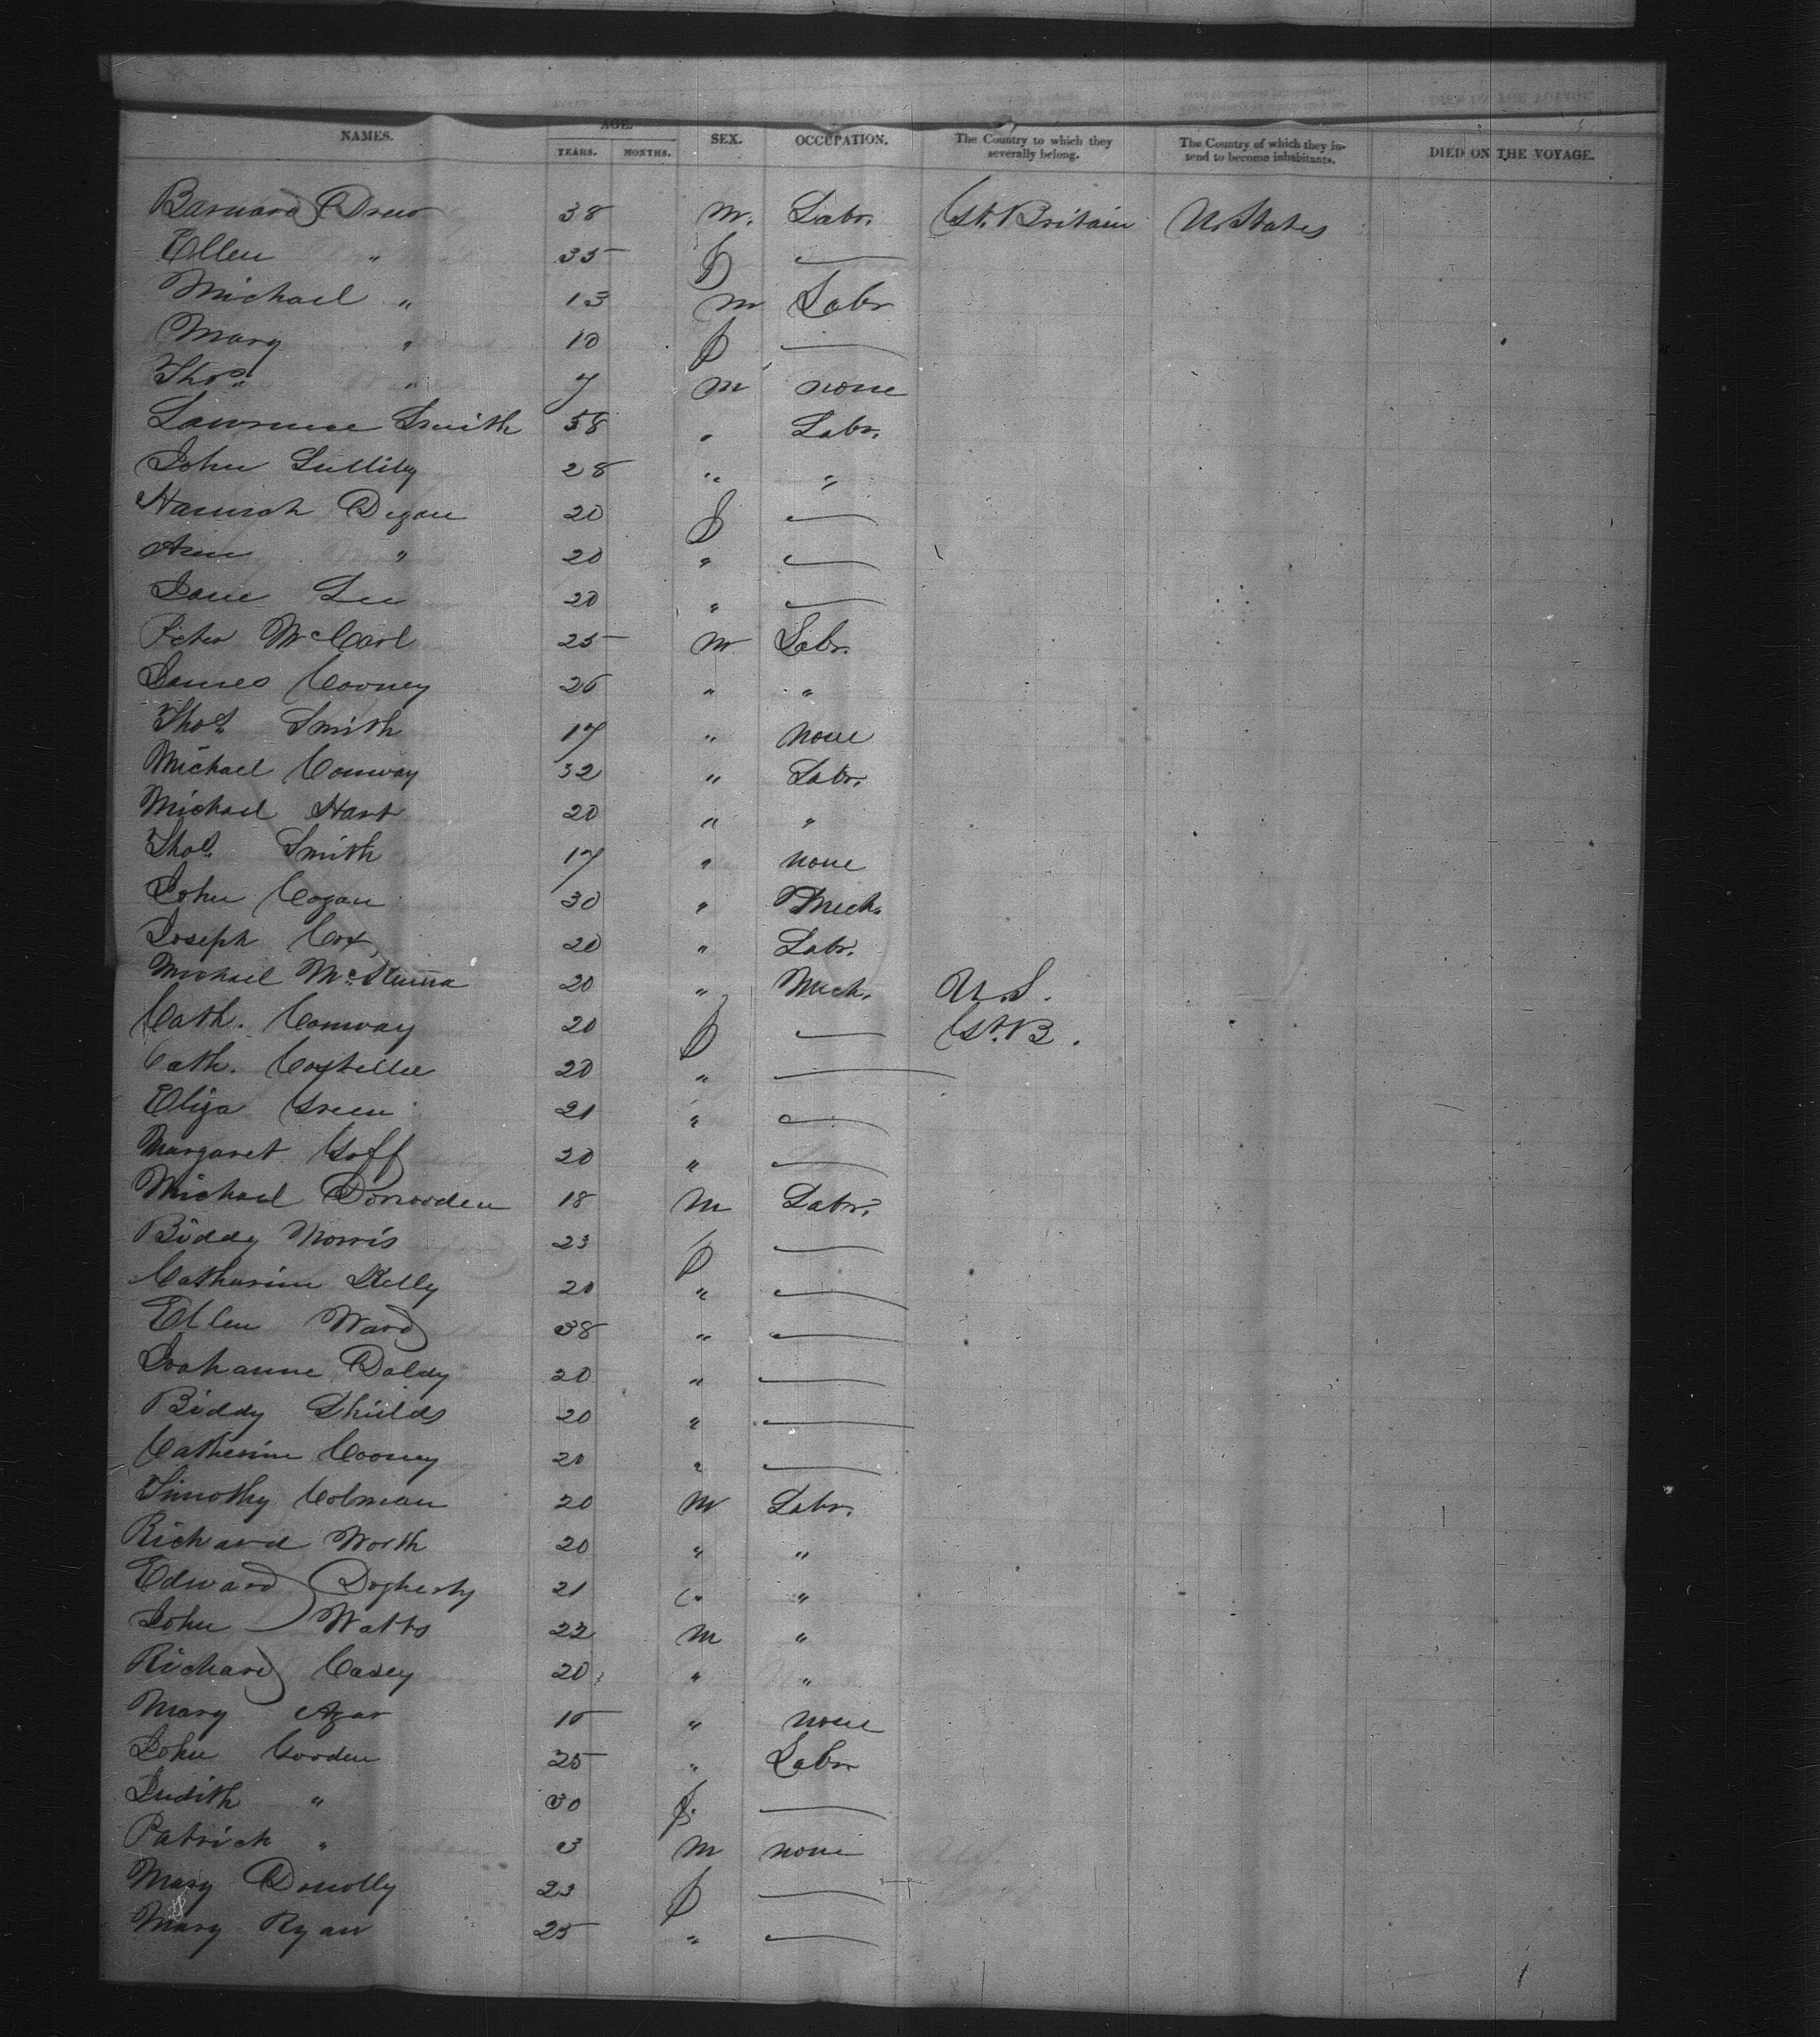 NAMES. AGE. SEX. OCCUPATION. The Country to which they severally belong. The Country of which they intend to become inhabitants. DIED ON THE VOYAGE.
YEARS. MONTHS.
Barnard Drew 38 m. Labr. Gt. Britain U. States
Ellen " 35 f —
Michael " 13 m Labr
Mary " 10 f —
Thos. " 7 m none
Lawrence Smith 58 " Labr.
John 28 " "
Hannah Degan 20 f —
Ann " 20 " —
Jane Lee 20 " —
Peter McCarl 25 m Labr.
James Cooney 26 " "
Thos. Smith 17 " none
Michael Conway 32 " Labr.
Michael Hart 20 " "
Thos. Smith 17 " none
John Cogan 30 " Mech.
Joseph Cox 20 " Labr.
Michael 20 " Mech. U.S.
Cath. Conway 20 f — Gt. B.
Cath. Costellee 20 " —
Eliza Green 21 " —
Margaret Goff 20 " —
Michael Donooden 18 m Labr.
Biddy Morris 23 f —
Catharine Kelly 20 " —
Ellen Ward 38 " —
Joahanne Daldy 20 " —
Biddy Shields 20 " —
Catherine Cooney 20 " —
Timothy Colman 20 m Labr.
Richard Worth 20 " "
Edward Dogherty 21 " "
John Watts 22 m "
Richard Casey 20 " "
Mary Agar 15 " none
John Gooden 35 " Labr
Judith " 30 f. —
Patrick " 3 m none
Mary Donolly 23 f —
Mary Ryan 25 " —